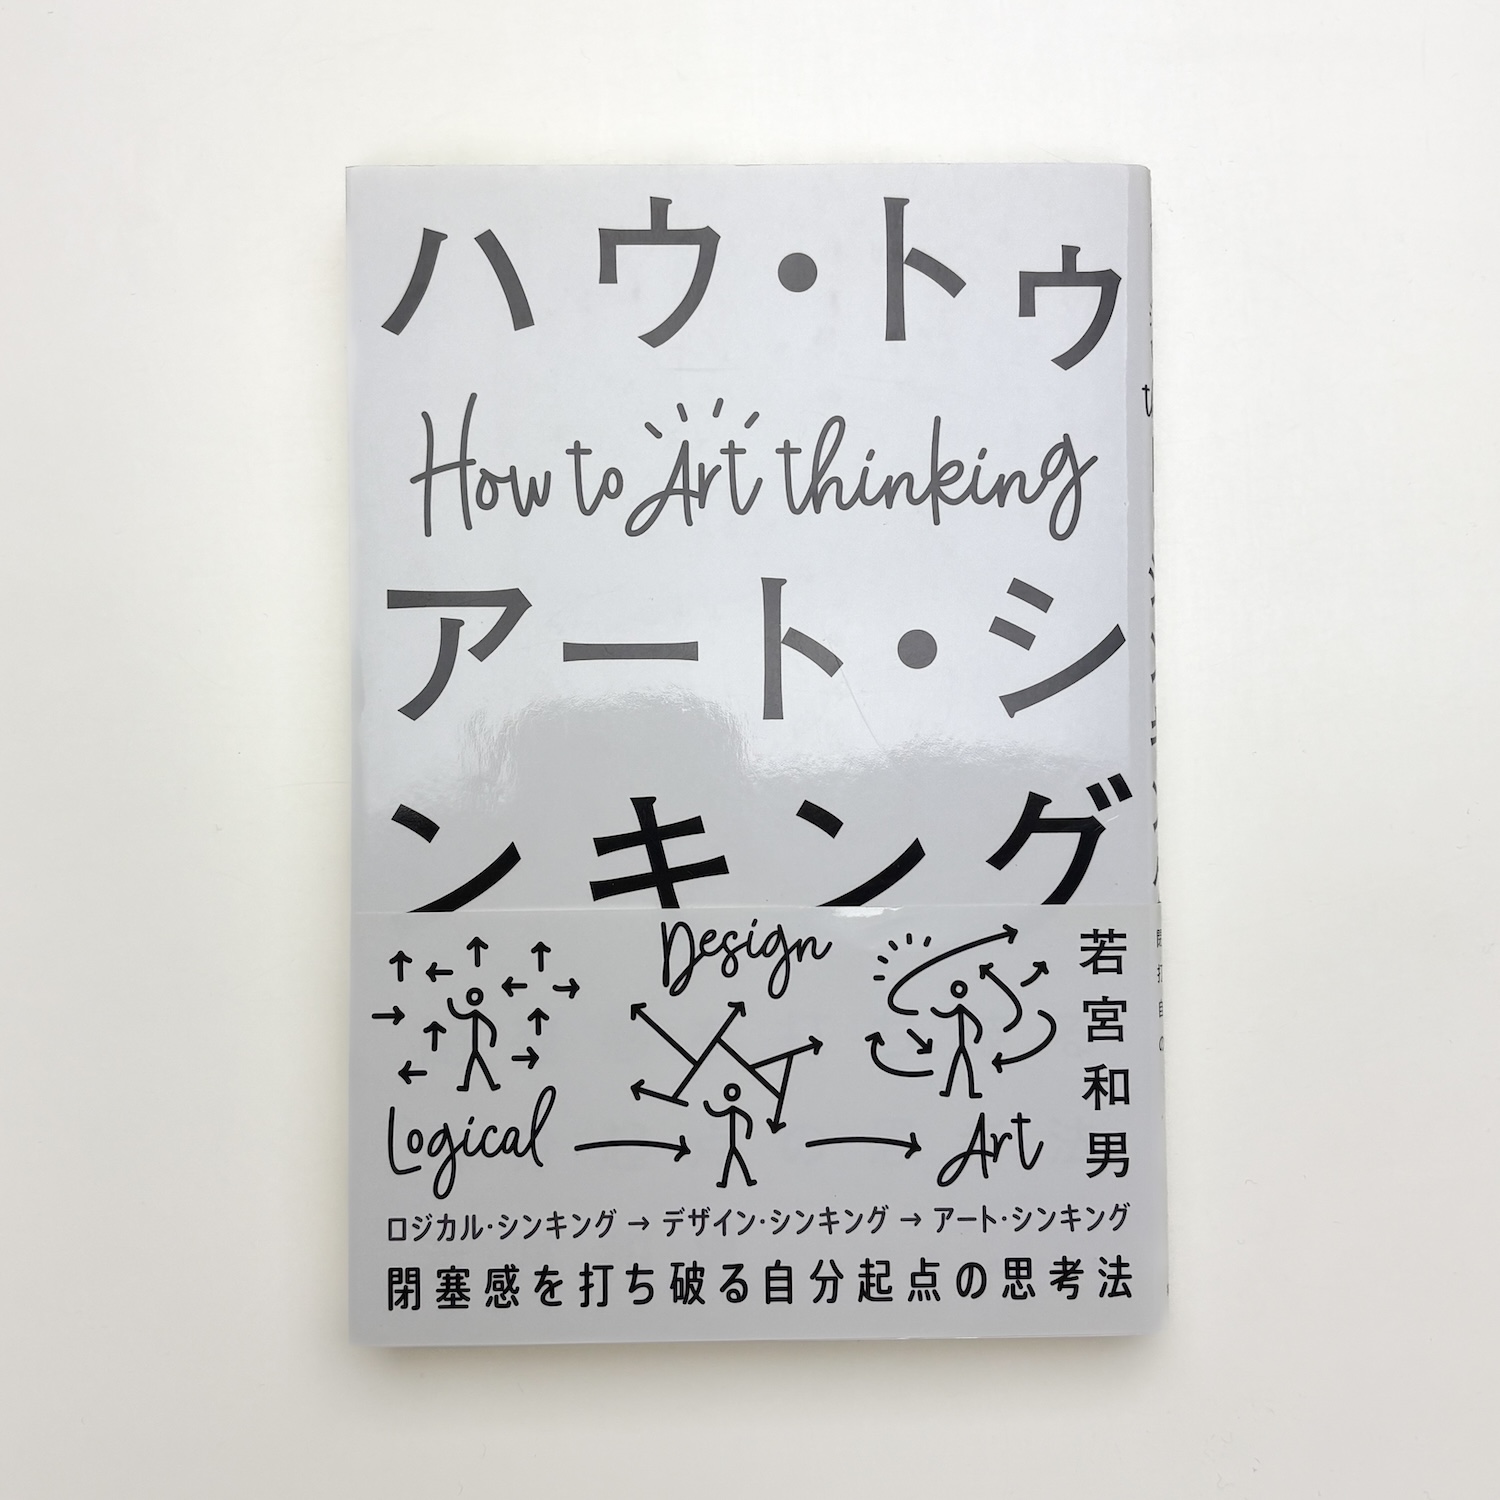 ハウ・トゥ
How to Art thinking
アート・シ
ンキング
Design
Logical
Art
若宮和男
ロジカル・シンキング → デザイン・シンキング → アート・シンキング
閉塞感を打ち破る自分起点の思考法